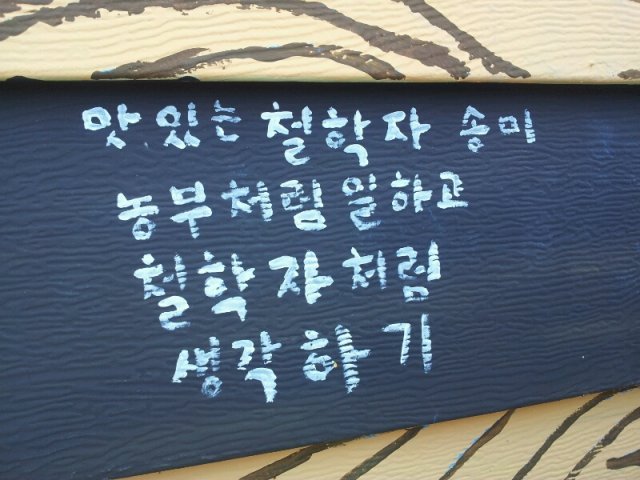 맛있는 철학자 송미
농부처럼 일하고
철학자처럼
생각하기